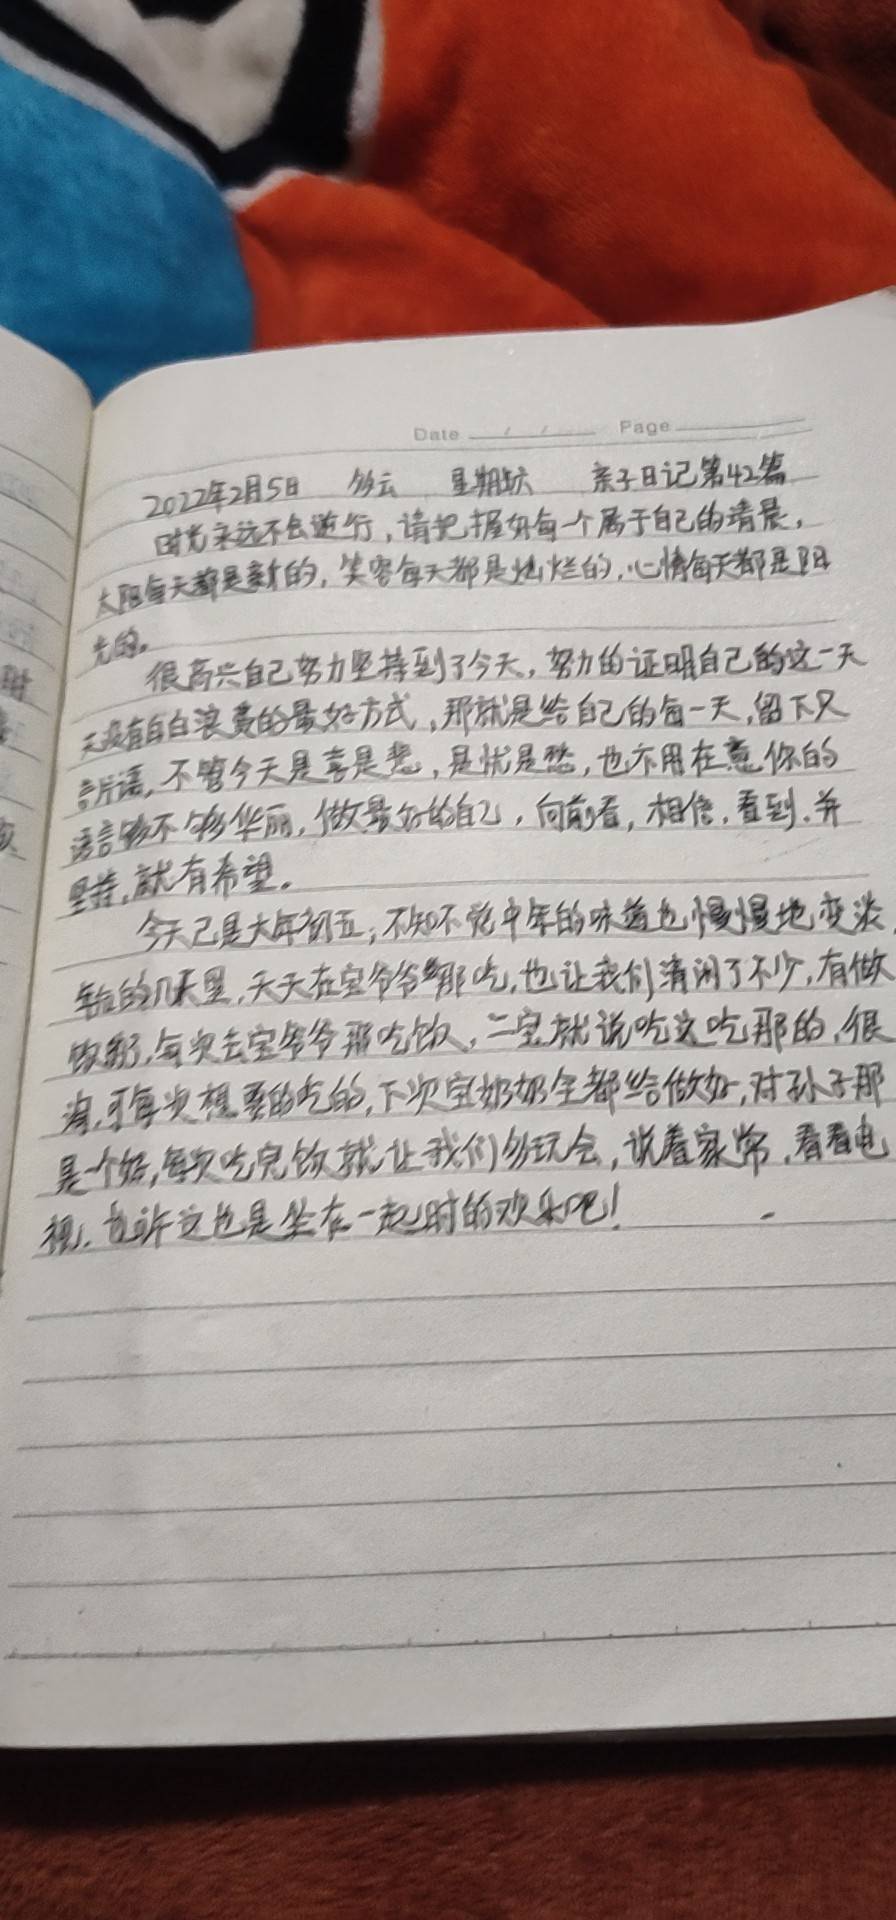 Date / / Page
2022年2月5日 多云 星期六 亲子日记第42篇
时光永远不会逆行，请把握好每一个属于自己的清晨，
太阳每天都是新的，笑容每天都是灿烂的，心情每天都是阳
光的。
很高兴自己努力坚持到了今天，努力的证明自己的这一天
天没有白白浪费的最好方式，那就是给自己的每一天，留下只
言片语，不管今天是喜是悲，是忧是愁，也不用在意你的
语言够不够华丽，做最好的自己，向前看，相信，看到，并
坚持，就有希望。
今天已是大年初五，不知不觉中年的味道也慢慢地变淡，
的几天里，天天在宝爷爷那吃，也让我们清闲了不少，有做
饭，每次去宝爷爷那吃饭，二宝就说吃这吃那的，很
，可每次想要的吃的，下次宝奶奶全都给做好，对孙子那
是一个好，每次吃完饭就让我们多玩会，说着家常，看看电
视，也许这也是坐在一起时的欢乐吧！